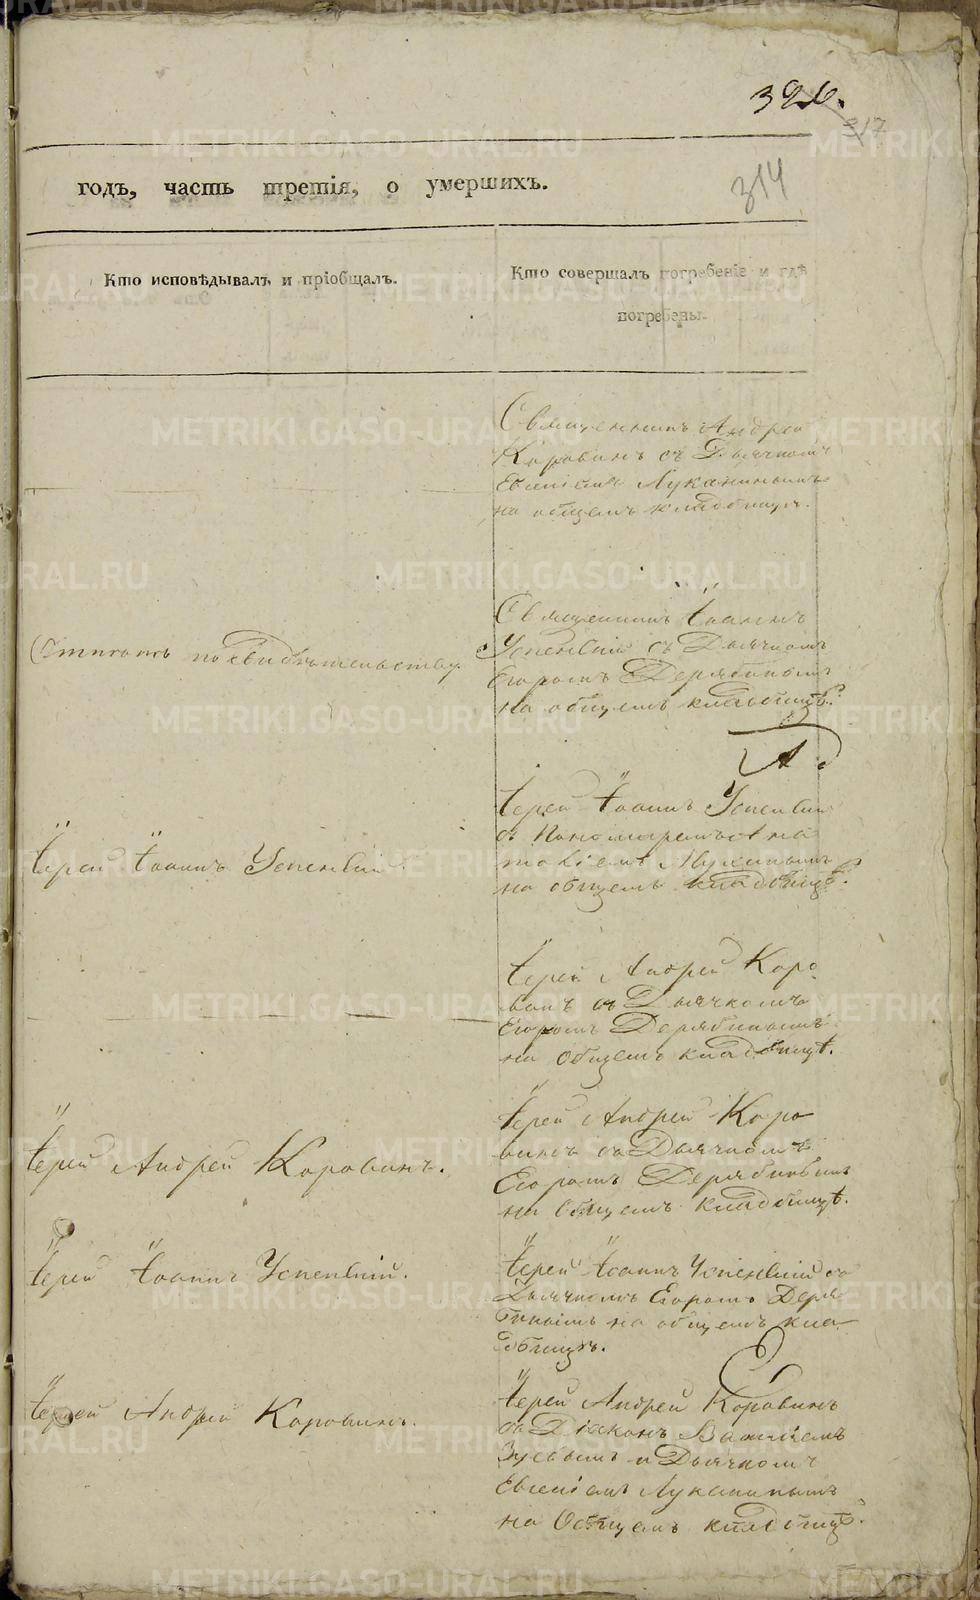 326.
317
314
годъ, часть третія, о умершихъ.
Кто исповѣдывалъ и пріобщалъ.
Кто совершалъ погребеніе и гдѣ
погребены.
Священникъ Андрей
Коровинъ съ Дьячкомъ
Евгеніемъ Луканинымъ
на общемъ кладбищѣ.
Священникъ Іоаннъ
Успенскій съ Дьячкомъ
Егоромъ Дерябинымъ
на общемъ кладбищѣ.
по свидѣтельству
Іерей Іоаннъ Успенскій
Іерей Іоаннъ Успенскій
съ Пономаремъ
Луканинымъ
на общемъ кладбищѣ.
Іерей Андрей Коро
винъ съ Дьячкомъ
Егоромъ Дерябинымъ
на общемъ кладбищѣ.
Іерей Андрей Коровинъ.
Іерей Андрей Коро
винъ съ Дьячкомъ
Егоромъ Дерябинымъ
на общемъ кладбищѣ.
Іерей Іоаннъ Успенскій.
Іерей Іоаннъ Успенскій съ
Дьячкомъ Егоромъ Деря
бинымъ на общемъ кла
дбищѣ.
Іерей Андрей Коровинъ.
Іерей Андрей Коровинъ
съ Діякономъ Василіемъ
Зуевымъ и Дьячкомъ
Евгеніемъ Луканинымъ
на Общемъ кладбищѣ.
METRIKI.GASO-URAL.RU